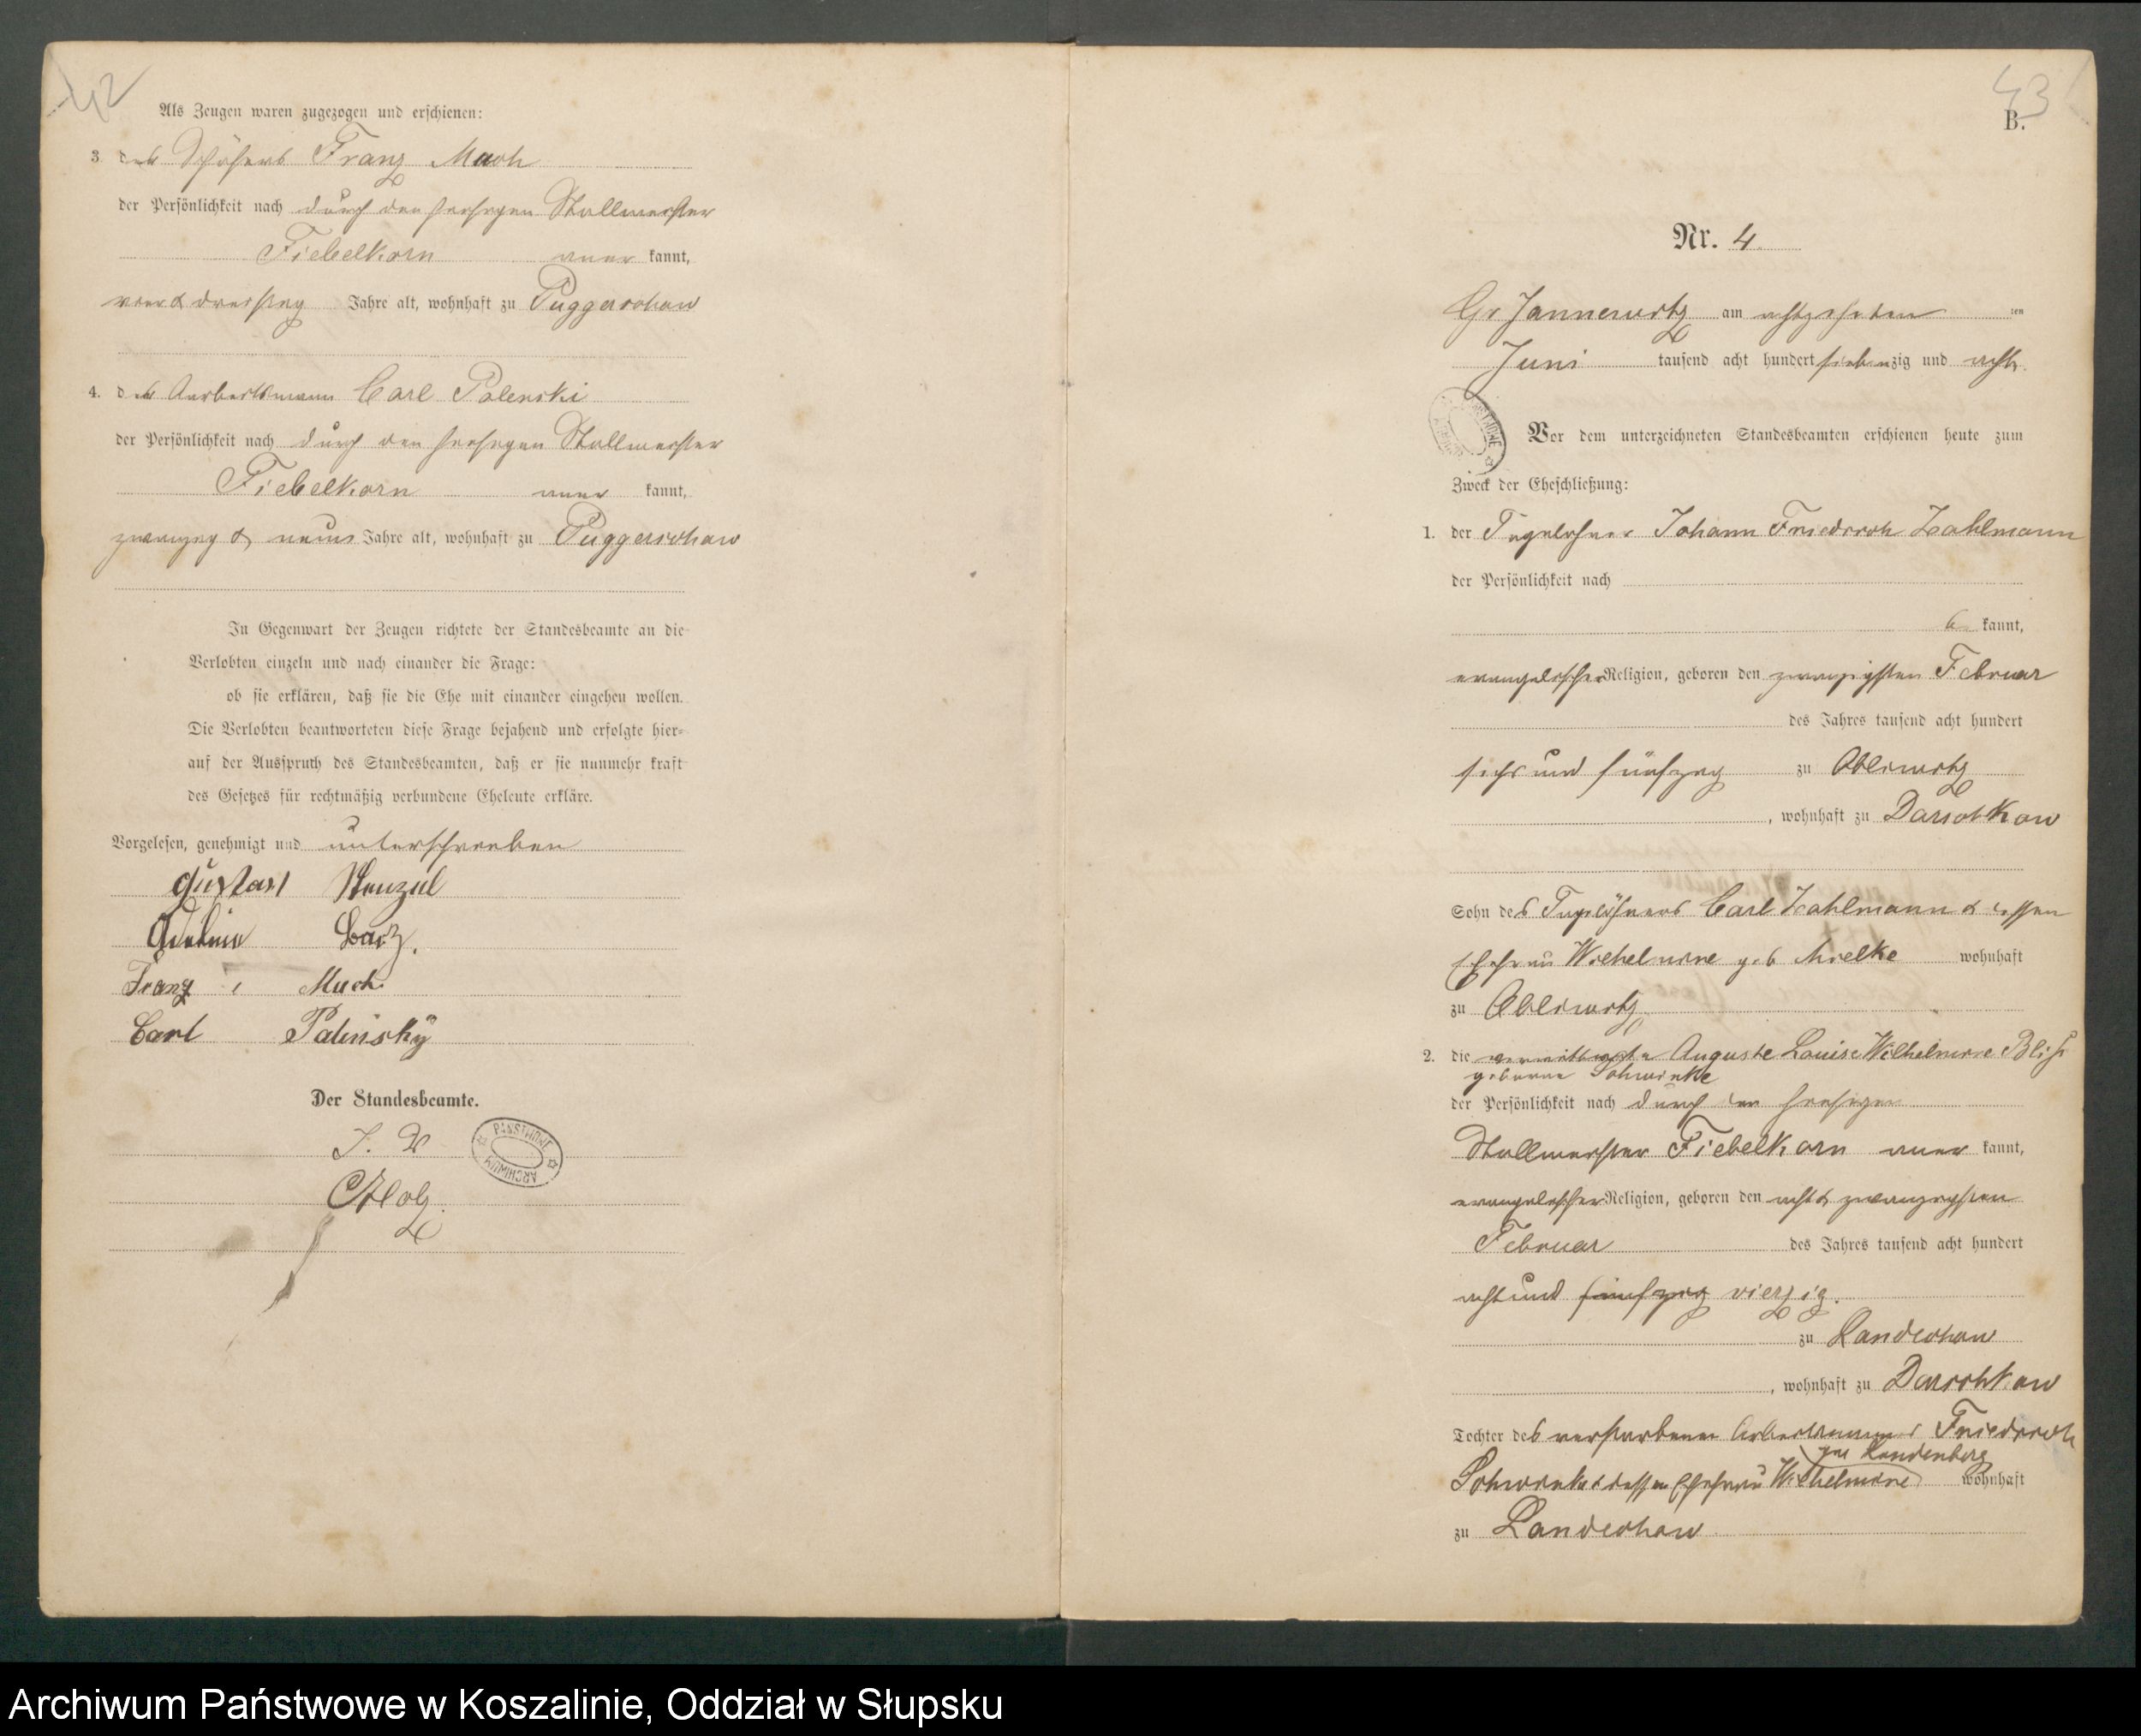 42
Als Zeugen waren zugezogen und erschienen:
3. des Schäfers Franz Mach
der Persönlichkeit nach durch den hiesigen Stallmeister
Fiebelkorn aner kannt,
vier & dreißig Jahre alt, wohnhaft zu Puggerschow
4. des Arbeitsmann Carl Palenski
der Persönlichkeit nach durch den hiesigen Stallmeister
Fiebelkorn aner kannt,
zwanzig & neun Jahre alt, wohnhaft zu Puggerschow
In Gegenwart der Zeugen richtete der Standesbeamte an die
Verlobten einzeln und nach einander die Frage:
ob sie erklären, daß sie die Ehe mit einander eingehen wollen.
Die Verlobten beantworteten diese Frage bejahend und erfolgte hier-
auf der Ausspruch des Standesbeamten, daß er sie nunmehr kraft
des Gesetzes für rechtmäßig verbundene Eheleute erkläre.
Vorgelesen, genehmigt und unterschrieben
Gustav
Franz Mach
Carl Palinsky
Der Standesbeamte.
PAŃSTWOWE
ARCHIWUM
43
B.
Nr. 4.
Gr Jannewitz am achtzehnten ten
Juni tausend acht hundert siebenzig und acht.
Vor dem unterzeichneten Standesbeamten erschienen heute zum
Zweck der Eheschließung:
1. der Tagelöhner Johann Friedrich Zahlmann
der Persönlichkeit nach
be kannt,
evangelischer Religion, geboren den zwanzigsten Februar
des Jahres tausend acht hundert
sechs und fünfzig zu Obliwitz
, wohnhaft zu Darschkow
Sohn des Tagelöhners Carl Zahlmann & dessen
Ehefrau Wilhelmine geb Mielke wohnhaft
zu Obliwitz
2. die verwittwete Auguste Louise Wilhelmine
geborene Schwinke
der Persönlichkeit nach durch den hiesigen
Stallmeister Fiebelkorn aner kannt,
evangelischer Religion, geboren den acht & zwanzigsten
Februar des Jahres tausend acht hundert
acht und fünfzig vierzig.
zu Landechow
, wohnhaft zu Darschkow
Tochter des verstorbenen Arbeitsmannes Friedrich
Schwinke & dessen Ehefrau Wilhelmine wohnhaft
zu Landechow
Archiwum Państwowe w Koszalinie, Oddział w Słupsku